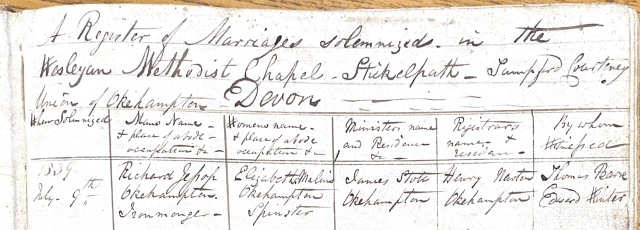 A Register of Marriages solemnized in the
Wesleyan Methodist Chapel - Stikelpath - Sampford Courtney
Union of Okehampton - Devon
When Solemnized
Mans Name -
& place of abode -
occupation &c -
Womens name -
& place of abode
occupation &c -
Ministers name
and Residence
&c -
Registrars
name &
residence -
By whom
Witnessed
1839
July 9th
Richard Jessop
Okehampton
Ironmonger -
Elizabeth
Okehampton
Spinster
James Stott
Okehampton
Henry Newton
Okehampton
Thomas
Edward Winter